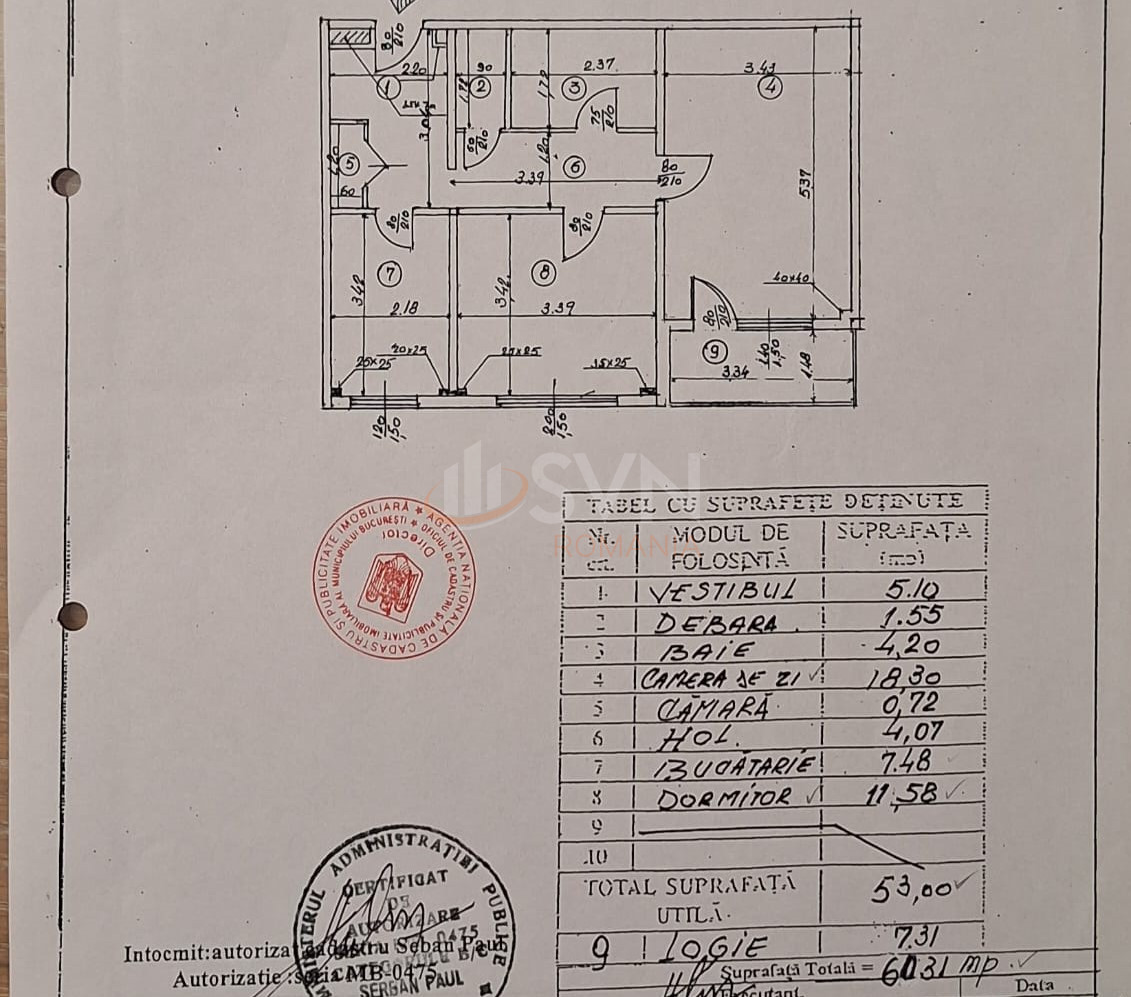 80/210
2.20
90
2.37
3.43
1
2
3
4
1,72
1,72
3,06
60/210
75/210
1,20
5
1,20
60
6
3.39
80/210
537
80/210
80/210
7
8
342
342
2.18
3.39
40x40
80/210
9
1,40/1,50
1,48
3,34
25x25
20x25
25x25
15x25
120/1,50
200/1,50
SVN
ROMANIA
AGENTIA NATIONALA DE CADASTRU ȘI PUBLICITATE IMOBILIARĂ
OFICIUL DE CADASTRU ȘI PUBLICITATE IMOBILIARA AL MUNICIPIULUI BUCUREȘTI
Director
TABEL CU SUPRAFEȚE DEȚINUTE
Nr. crt. MODUL DE FOLOSINȚĂ SUPRAFAȚA (mp)
1 VESTIBUL 5.10
2 DEBARA 1.55
3 BAIE 4,20
4 CAMERA DE ZI 18,30
5 CĂMARĂ 0,72
6 HOL 4,07
7 BUCĂTARIE 7.48
8 DORMITOR 11,58
9
10
TOTAL SUPRAFAȚĂ UTILĂ 53,00
9 LOGIE 7.31
Suprafață Totală = 60,31 mp
Data
MINISTERUL ADMINISTRATIEI PUBLICE
CERTIFICAT
DE
AUTORIZARE
0475
CATEGORIILE B/C
SERBAN PAUL
Intocmit:autorizat cadastru Seban Paul
Autorizatie :seria MB-0475
Executant